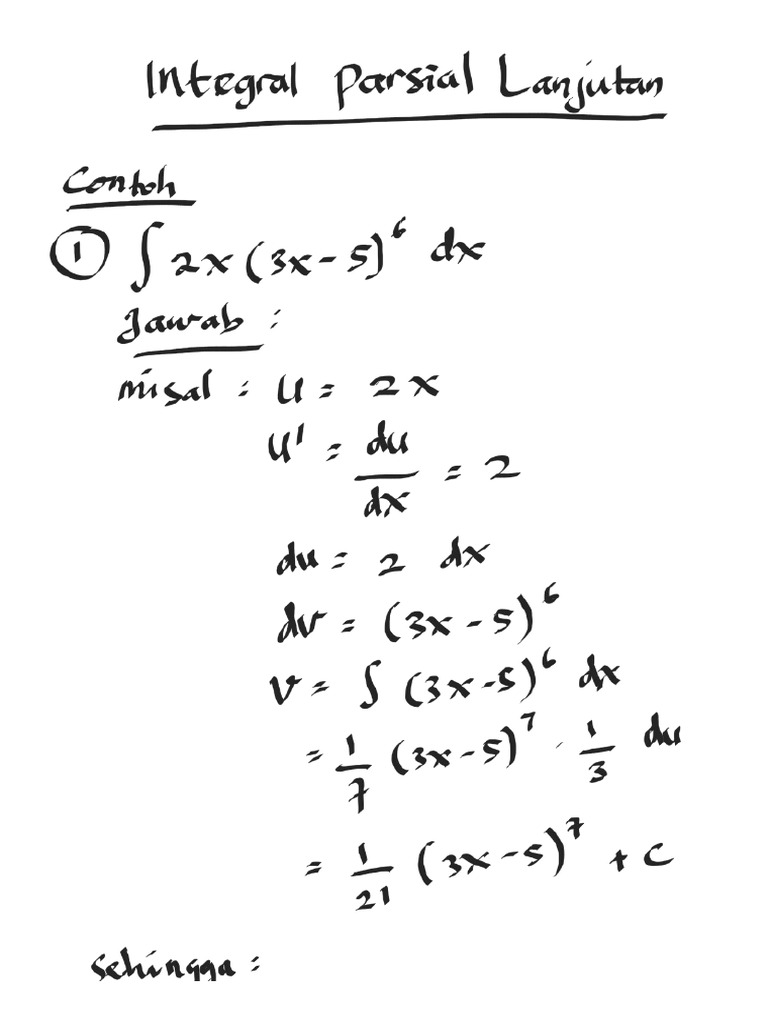 Integral Parsial Lanjutan
Contoh
① ∫ 2x (3x - 5)⁶ dx
Jawab :
misal : u = 2x
u' = du/dx = 2
du = 2 dx
dv = (3x - 5)⁶
v = ∫ (3x - 5)⁶ dx
= 1/7 (3x - 5)⁷ · 1/3 du
= 1/21 (3x - 5)⁷ + C
sehingga :